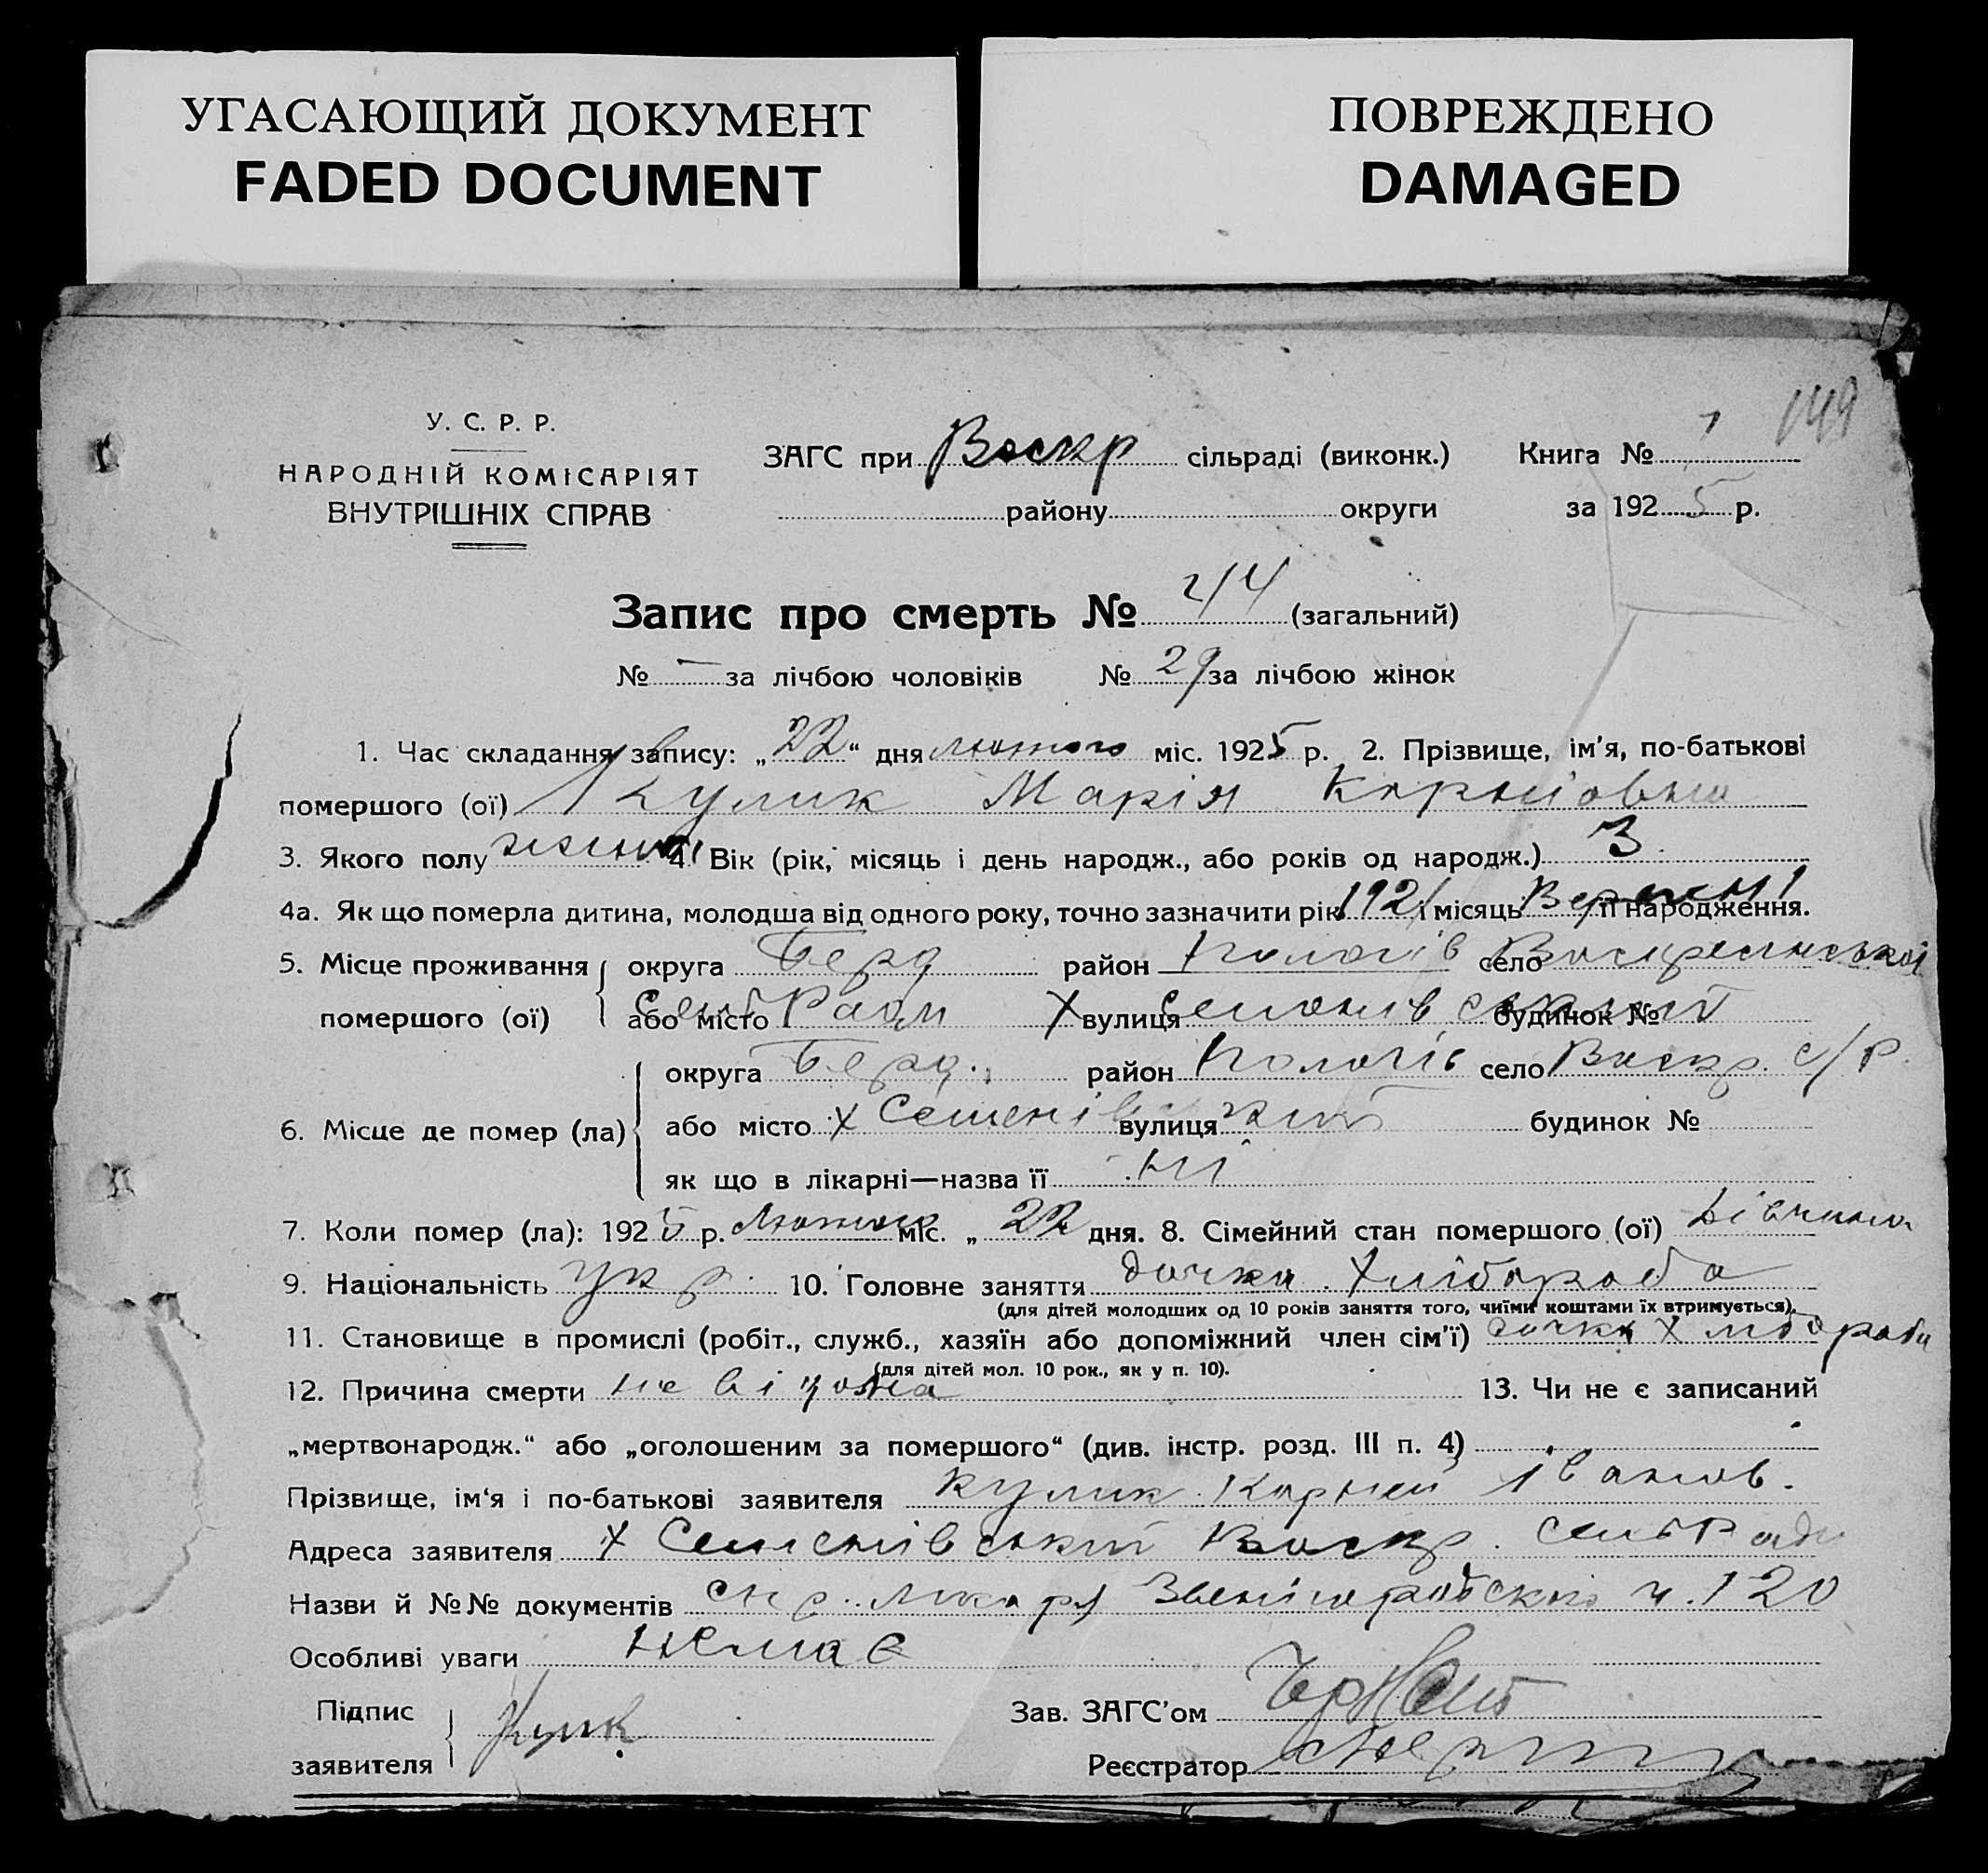 УГАСАЮЩИЙ ДОКУМЕНТ
FADED DOCUMENT
ПОВРЕЖДЕНО
DAMAGED
149
У. С. Р. Р.
НАРОДНІЙ КОМІСАРІЯТ
ВНУТРІШНІХ СПРАВ
ЗАГС при Воскр сільраді (виконк.) Книга № 1
району округи за 1925 р.
Запис про смерть № 44 (загальний)
№ — за лічбою чоловіків № 29 за лічбою жінок
1. Час складання запису: „22“ дня лютого міс. 1925 р. 2. Прізвище, ім'я, по-батькові
помершого (ої) Кулик Марія Корніовна
3. Якого полу 4. Вік (рік, місяць і день народж., або років од народж.) 3
4а. Як що померла дитина, молодша від одного року, точно зазначити рік 1921 і місяць її народження.
5. Місце проживання округа Берд район Пологів село Воскресенської
помершого (ої) або місто СельРади Х вулиця Семенівський будинок №
округа Берд. район Пологів село Воскр. с/р.
6. Місце де помер (ла) або місто х Семенівський вулиця будинок №
як що в лікарні—назва її ні
7. Коли помер (ла): 1925 р. Лютого міс. „22 дня. 8. Сімейний стан помершого (ої) Дівчина
9. Національність укр. 10. Головне заняття дочка Хлібороба
(для дітей молодших од 10 років заняття того, чиїми коштами їх втримується).
11. Становище в промислі (робіт., служб., хазяїн або допоміжний член сім'ї) дочка Хлібороба
(для дітей мол. 10 рок., як у п. 10).
12. Причина смерти не відома 13. Чи не є записаний
„мертвонародж.“ або „оголошеним за помершого“ (див. інстр. розд. III п. 4)
Прізвище, ім'я і по-батькові заявителя Кулик Корней Іванов.
Адреса заявителя х Семенівський Воскр. сельРади
Назви й №№ документів ч. 120
Особливі уваги немає
Підпис
заявителя Кулик
Зав. ЗАГС'ом
Реєстратор